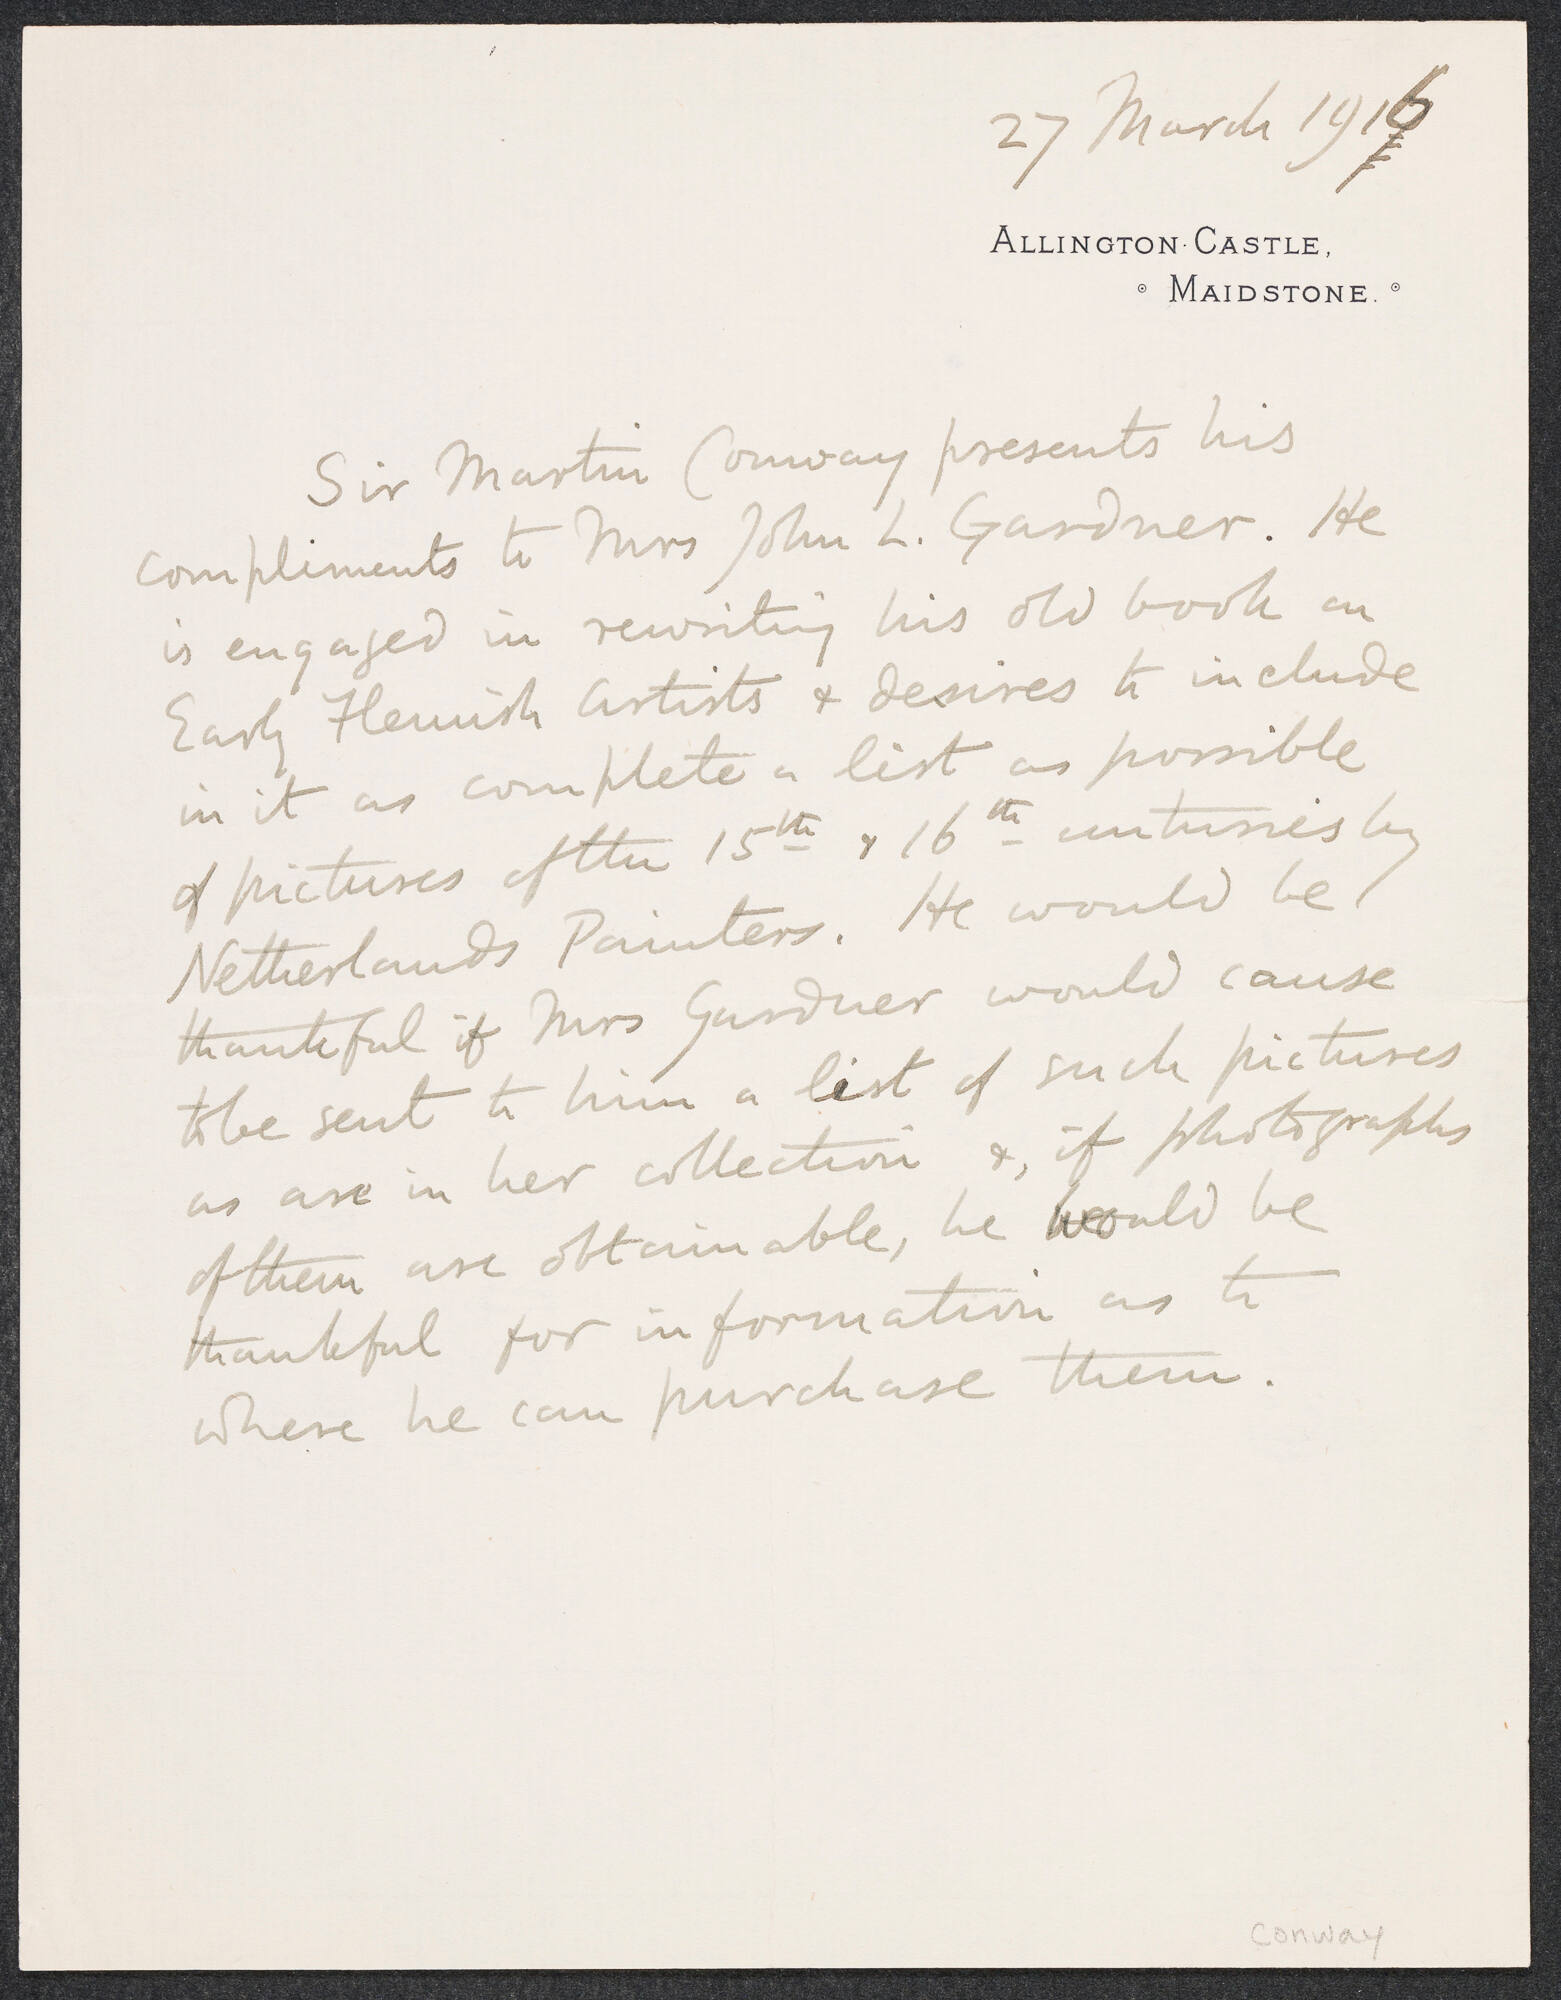 27 March 1916
ALLINGTON CASTLE,
MAIDSTONE.
Sir Martin Conway presents his
compliments to Mrs John L. Gardner. He
is engaged in rewriting his old book on
Early Flemish Artists & desires to include
in it as complete a list as possible
of pictures of the 15th & 16th centuries by
Netherlands Painters. He would be
thankful if Mrs Gardner would cause
to be sent to him a list of such pictures
as are in her collection &, if photographs
of them are obtainable, he would be
thankful for information as to
where he can purchase them.
Conway